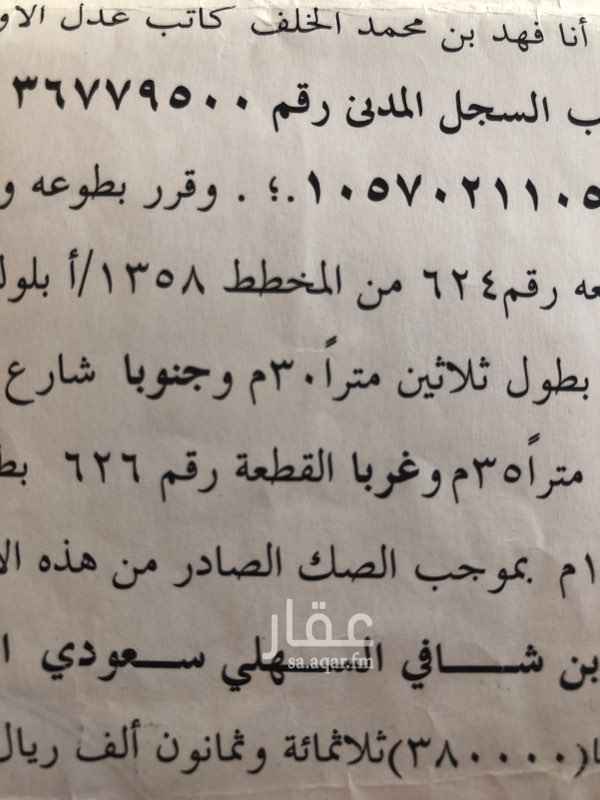 أنا فهد بن محمد الخلف كاتب عدل الاو
ب السجل المدنى رقم ٣٦٧٧٩٥٠٠
١٠٥٧٠٢١١٠٥.؛ . وقرر بطوعه و
عه رقم٦٢٤ من المخطط ١٣٥٨/أ بلوك
بطول ثلاثين متراً٣٠م وجنوبا شارع
متراً٣٥م وغربا القطعة رقم ٦٢٦ بط
١م بموجب الصك الصادر من هذه الا
عقار
sa.aqar.fm
بن شافي السهلي سعودي ا
ا(٣٨٠٠٠٠)ثلاثمائة وثمانون ألف ريال